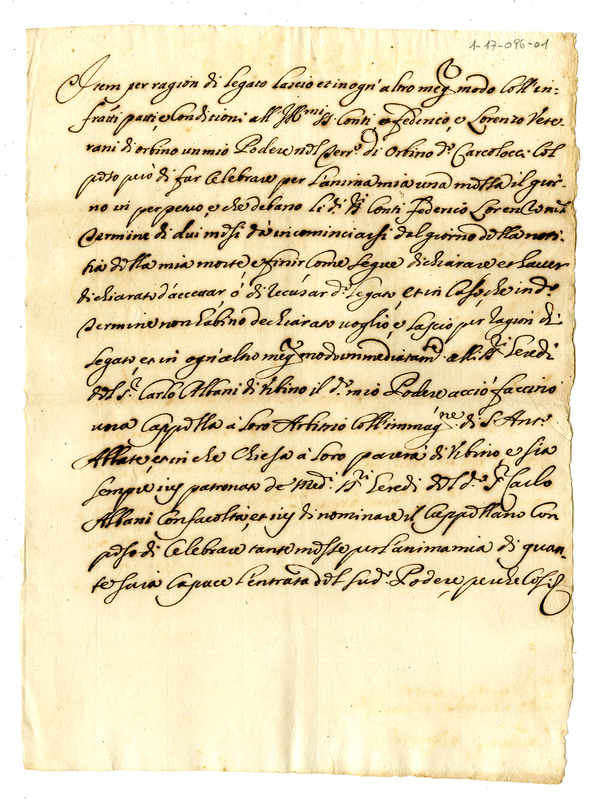 1-17-096-01
Item per ragion di legato lascio et in ogn'altro mey.r modo coll'in-
fratti patti e Conditioni all'Ill.mi SS. Conti Federico, e Lorenzo Vete-
rani di orbino un mio Podere nel Terr.o di Orbino d.o Carcolocci Col
peso però di far Celebrare per l'anima mia una messa il gior-
no in perpetuo, e che debano li d.i SS. Conti Federico Lorenzo nel
Termine di dui mesi da incominciarsi dal giorno della noti-
tia della mia morte e finir come segue dichiarare et haver
dichiarato d'accettar ò di recusar d.o legato, et in Caso che in d.o
Termine non habino dechiarato voglio, e lascio per ragion di
legato, et in ogn'altro mey.r modo immediatam.te alli SS.ri Heredi
del S.r Carlo Albani di Urbino il d.o mio Podere acciò faccino
una Cappella à loro Arbitrio coll'immag.ne di S. Ant.o
Abbate, et in che Chiesa à loro parerà di Urbino e sia
sempre ius patronato de Med.i SS.ri Heredi del d.o S.r Carlo
Albani con facoltà, et ius di nominare il Cappellano con
peso di Celebrare tante messe per l'anima mia di quan-
te sarà Capace l'entrata del sud.o Podere, perche Così